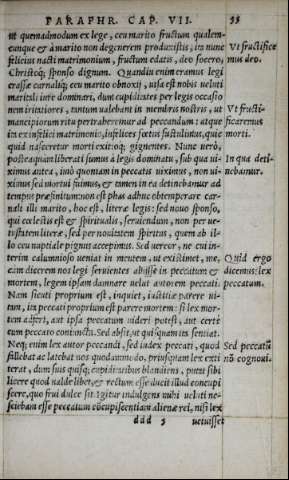 PARAPHR. CAP. VII.
55
ut quemadmodum ex lege, ceu marito fructum qualem-
cunque & à marito non degenerem produxistis, ita nunc
felicius nacti matrimonium, fructum edatis, deo socero,
Christoq; sponso dignum. Quandiu enim eramus legi
crassæ carnaliq; ceu marito obnoxij, uisa est nobis ueluti
maritali iure dominari, dum cupiditates per legis occasio
nem irritatiores, tantum ualebant in membris nostris, ut
mancipiorum ritu pertraheremur ad peccandum: atque
ex infelici matrimonio, infelices fœtus sustulimus, quic
quid nasceretur morti exitioq; gignentes. Nunc uerò,
posteaquàm liberati sumus à legis dominatu, sub qua ui-
ximus antea, imò quoniam in peccatis uiximus, non ui-
ximus sed mortui fuimus, & tamen in ea detinebamur ad
tempus præfinitum: non est phas adhuc obtemperare car-
nali illi marito, hoc est, literæ legis: sed nouo sponso,
qui cœlestis est & spiritualis, seruiendum, non per ue-
tustatem literæ, sed per nouitatem spiritus, quem ab il-
lo ceu nuptiale pignus accepimus. Sed uereor, ne cui in-
terim calumnioso ueniat in mentem, ut existimet, me,
cùm dicerem nos legi seruientes abijsse in peccatum &
mortem, legem ipsam damnare uelut autorem peccati.
Nam sicuti proprium est, inquiet, iustitiæ parere ui-
tam, ita peccati proprium est parere mortem: si lex mor-
tem adfert, aut ipsa peccatum uideri potest, aut certè
cum peccato coniuncta. Sed absit, ut quisquam ita sentiat.
Neq; enim lex autor peccandi, sed index peccati, quod
fallebat ac latebat nos quodammodo, priusquam lex exti
terat, dum suis quisq; cupiditatibus blandiens, putat sibi
licere quod ualde libet, & rectum esse ducit illud concupi
scere, quo frui dulce sit. Igitur indulgens mihi ueluti ne-
sciebam esse peccatum cōcupiscentiam alienæ rei, nisi lex
ddd 3 uetuisset
Vt fructifice
mus deo.
Vt fructi-
ficaremus
morti.
In qua deti-
nebamur.
Quid ergo
dicemus: lex
peccatum.
Sed peccatū
nō cognoui.